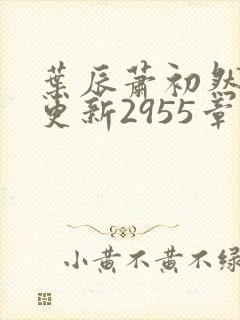 葉辰蕭初然
更新2955章
小黃不黃不綠